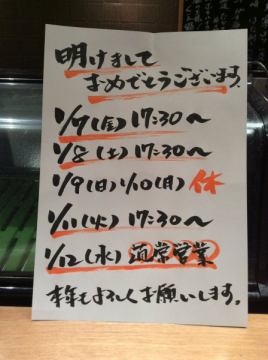 明けまして
おめでとうございます。
1/7(金)17:30〜
1/8(土)17:30〜
1/9(日)1/10(月)休
1/11(火)17:30〜
1/12(水)通常営業
本年もよろしくお願いします。